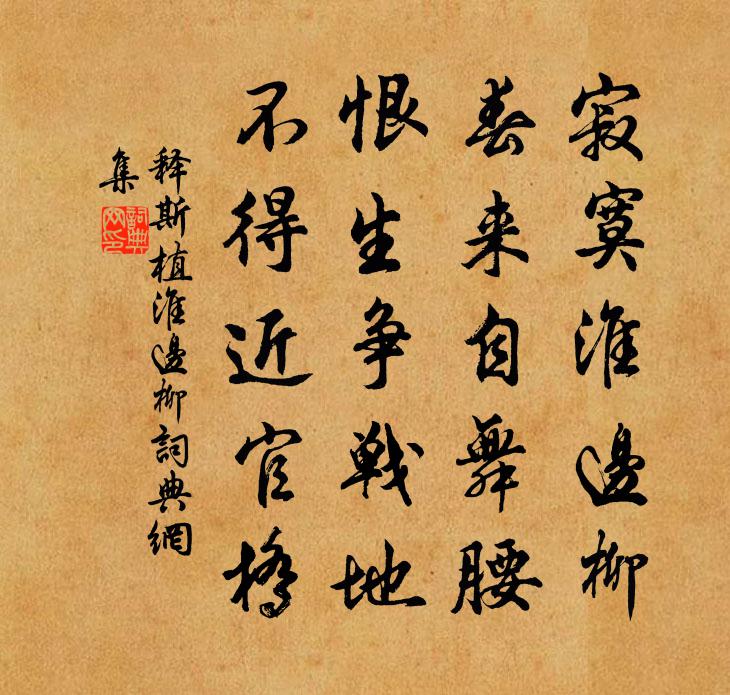 寂寞淮邊柳
春來自舞腰
恨生争戦地
不得近官橋
释斯植淮邊柳詞典網
集
詞典
网印